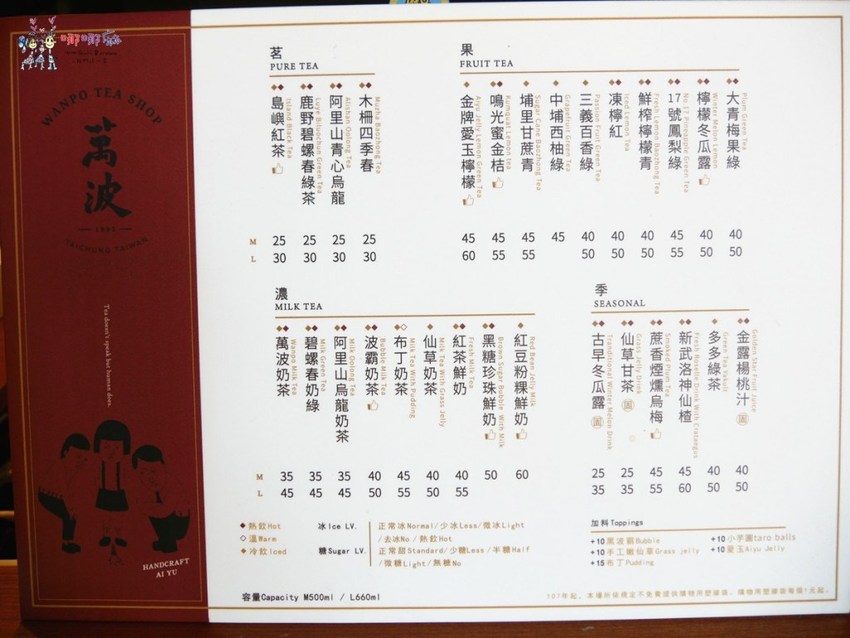 WANPO TEA SHOP
萬波
TAICHUNG TAIWAN
Tea doesn't speak but human does.
HANDCRAFT
AI YU
茗
PURE TEA
木柵四季春
阿里山青心烏龍
Alishan Oolong Tea
鹿野碧螺春綠茶
島嶼紅茶
Island Black Tea
M 25 25 25 25
L 30 30 30 30
果
FRUIT TEA
大青梅果綠
Plum Green Tea
檸檬冬瓜露
Winter Melon Lemon
17號鳳梨綠
No.17 Pineapple Green Tea
鮮榨檸檬青
凍檸紅
Iced Lemon Tea
三義百香綠
Passion Fruit Green Tea
中埔西柚綠
Grapefruit Green Tea
埔里甘蔗青
Sugar Cane Baozhong Tea
鳴光蜜金桔
Kumquat Lemon tea
金牌愛玉檸檬
Aiyu Jelly Lemon Green Tea
45 45 45 45 40 40 40 45 40 40
60 55 55 50 50 50 55 50 50
濃
MILK TEA
紅豆粉粿鮮奶
Red Bean Jelly Milk
黑糖珍珠鮮奶
Brown Sugar Bubble With Milk
紅茶鮮奶
Fresh Milk Tea
仙草奶茶
Milk Tea With Grass Jelly
布丁奶茶
Milk Tea With Pudding
波霸奶茶
Bubble Milk Tea
阿里山烏龍奶茶
Milk Oolong Tea
碧螺春奶綠
Milk Green Tea
萬波奶茶
Wanpo Milk Tea
M 35 35 35 40 45 40 40 50 60
L 45 45 45 50 55 50 55
季
SEASONAL
金露楊桃汁
Golden Star Fruit Juice
多多綠茶
Green Tea Yakult
新武洛神仙楂
蔗香煙燻烏梅
Smoked Plum Tea
仙草甘茶
Grass Jelly Drink
古早冬瓜露
Traditional Winter Melon Drink
25 25 45 45 40 40
35 35 55 60 50 50
熱飲Hot
溫Warm
冷飲Iced
冰Ice LV.
糖Sugar LV.
正常冰Normal/少冰Less/微冰Light
/去冰No / 熱飲Hot
正常甜Standard/少糖Less/半糖Half
/微糖Light/無糖No
加料Toppings
+10黑波霸Bubble
+10手工嫩仙草Grass jelly
+15布丁Pudding
+10小芋圓taro balls
+10愛玉Aiyu Jelly
容量Capacity M500ml / L660ml